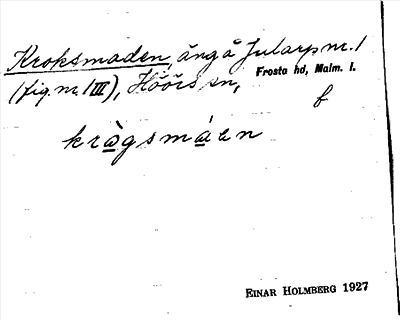 Kroksmaden, äng å Jularp nr. 1
(fig. nr. 1 III), Höörs sn,
Frosta hd, Malm. l.
f
kràgsmáen
EINAR HOLMBERG 1927